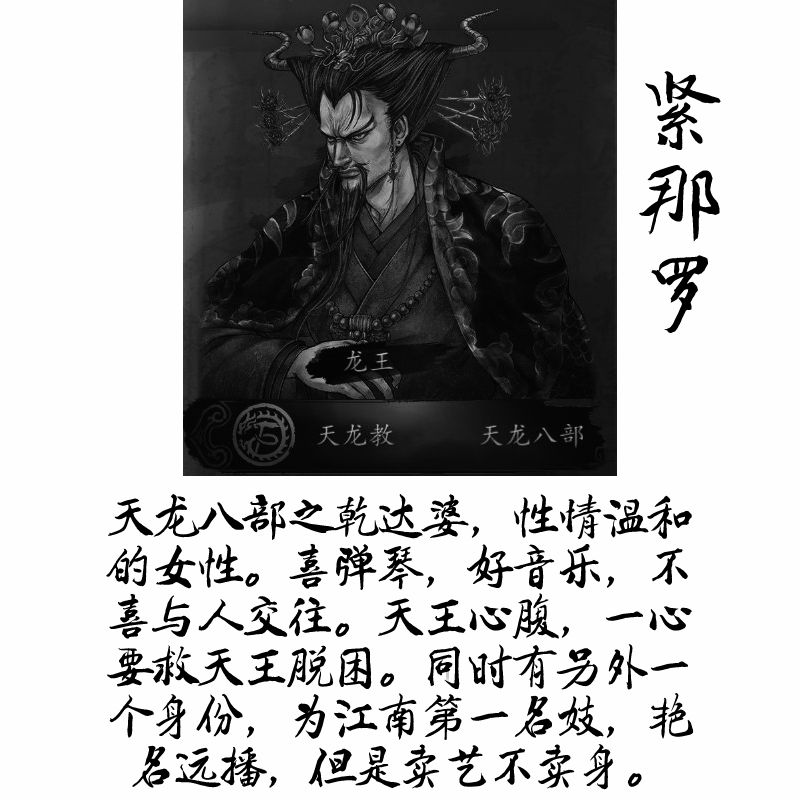 紧那罗
龙王
天龙教 天龙八部
天龙八部之乾达婆，性情温和
的女性。喜弹琴，好音乐，不
喜与人交往。天王心腹，一心
要救天王脱困。同时有另外一
个身份，为江南第一名妓，艳
名远播，但是卖艺不卖身。